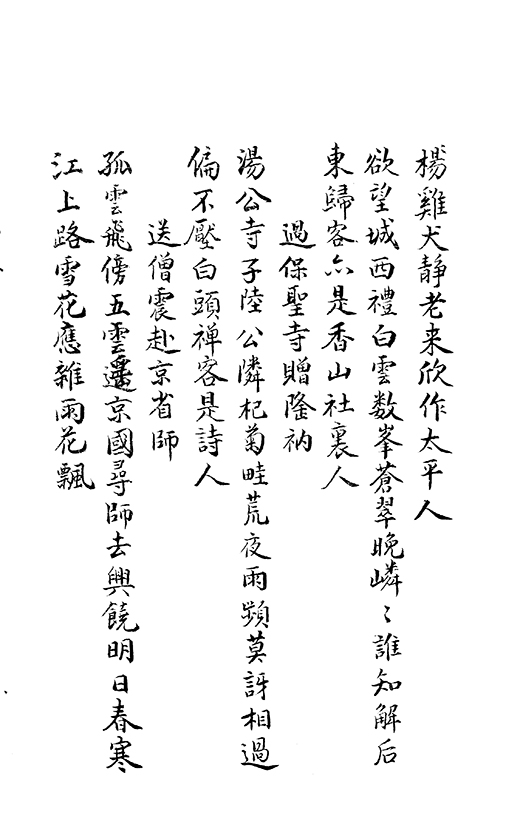 楊雞犬静老来欣作太平人
欲望城西禮白雲数峯蒼翠晚嶙〻誰知解后
東歸客亦是香山社裏人
過保聖寺贈隆衲
湯公寺子陸公隣杞菊畦荒夜雨頻莫訝相過
偏不壓白頭禅客是詩人
送僧震赴京省師
孤雲飛傍五雲遥京國尋師去興饒明日春寒
江上路雪花應雜雨花飄